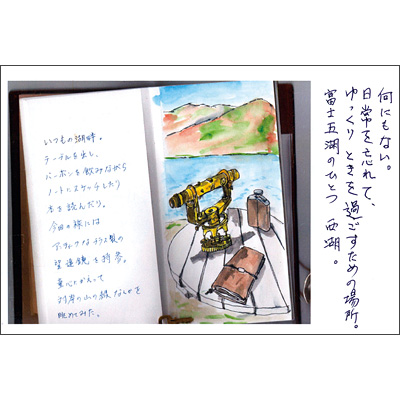 いつもの湖畔。
テーブルを出し、
バーボンを飲みながら
ノートにスケッチしたり
本を読んだり。
今回の旅には
アンティークな 製の
望遠鏡を持参。
童心にかえって
対岸の山の緑なんかを
眺めてみた。
何にもない。
日常を忘れて、
ゆっくりときを過ごすための場所。
富士五湖のひとつ 西湖。